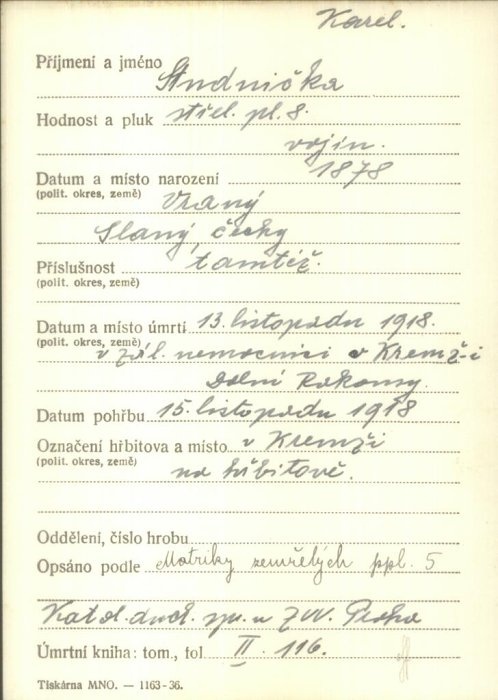 Karel.
Příjmení a jméno Studnička
Hodnost a pluk střel. pl. 8.
vojín.
Datum a místo narození 1878
(polit. okres, země) Vraný
Slaný, česky
Příslušnost tamtéž.
(polit. okres, země)
Datum a místo úmrtí 13. listopadu 1918.
(polit. okres, země) v zál. nemocnici v Kremž-i
Dolní Rakousy.
Datum pohřbu 15. listopadu 1918
Označení hřbitova a místo v Kremži
(polit. okres, země) na hřbitově.
Oddělení, číslo hrobu
Opsáno podle Matriky zemřelých ppl. 5
Katol. duch. spr. u ZVV. Praha
Úmrtní kniha: tom., fol II. 116.
Tiskárna MNO. — 1163-36.